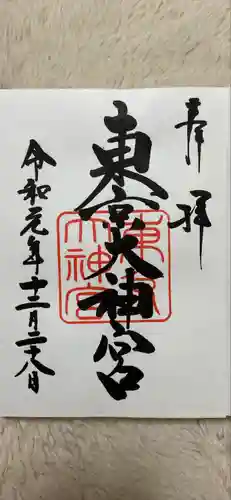 奉拝
東京大神宮
東京大神宮
令和元年十二月二十八日